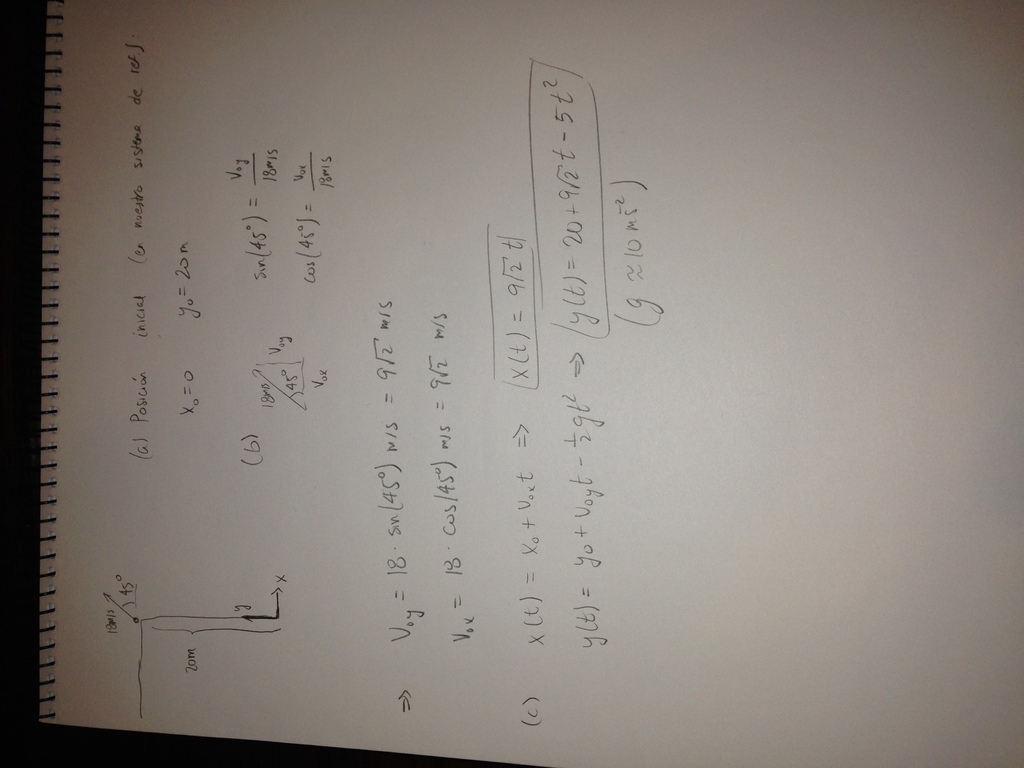 18m/s
45°
20m
y
x
(a) Posición inicial (en nuestro sistema de ref).
x₀ = 0 y₀ = 20m
(b)
18m/s
45°
V₀y
V₀x
sin(45°) = V₀y / 18m/s
cos(45°) = V₀x / 18m/s
⇒ V₀y = 18 · sin(45°) m/s = 9√2 m/s
V₀x = 18 · cos(45°) m/s = 9√2 m/s
(c) x(t) = x₀ + V₀x t ⇒ x(t) = 9√2 t
y(t) = y₀ + V₀y t - ½gt² ⇒ y(t) = 20 + 9√2 t - 5t²
(g ≈ 10 ms⁻²)